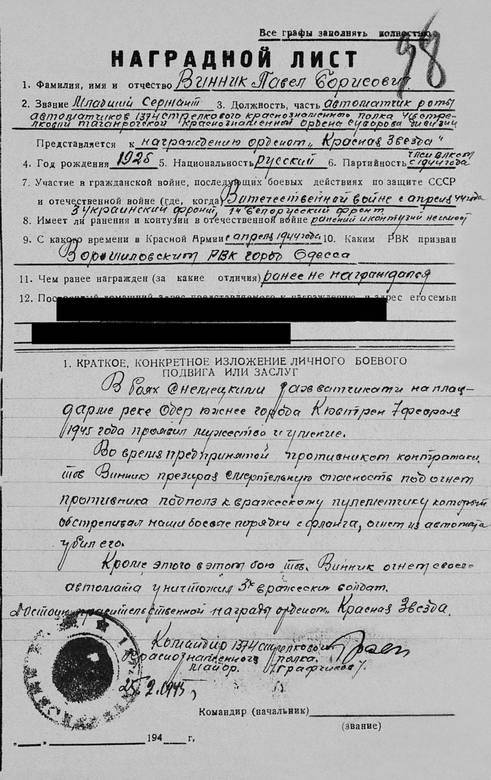 Все графы заполнять полностью
98
НАГРАДНОЙ ЛИСТ
1. Фамилия, имя и отчество Винник Павел Борисович
2. Звание Младший Сержант 3. Должность, часть автоматчик роты
автоматчиков 1374 стрелкового краснознаменного полка 416 стрел-
ковой Таганрогской Краснознаменной ордена Суворова дивизии
Представляется к награждению орденом „Красная Звезда"
4. Год рождения 1925 5. Национальность русский 6. Партийность член ВЛКСМ с 1944 года
7. Участие в гражданской войне, последующих боевых действиях по защите СССР
и отечественной войне (где, когда) В отечественной войне с апреля 44 года
3 украинский фронт, 1й Белорусский фронт
8. Имеет ли ранения и контузии в отечественной войне ранений и контузий не имеет
9. С какого времени в Красной Армии с апреля 1944 года 10. Каким РВК призван
Ворошиловским РВК город Одесса
11. Чем ранее награжден (за какие отличия) ранее не награждался
12. Постоянный домашний адрес представляемого к награждению и адрес его семьи
1. КРАТКОЕ, КОНКРЕТНОЕ ИЗЛОЖЕНИЕ ЛИЧНОГО БОЕВОГО
ПОДВИГА ИЛИ ЗАСЛУГ
В боях с немецкими захватчиками на плац-
дарме реке Одер южнее города Кюстрен 7 февраля
1945 года проявил мужество и умение.
Во время предпринятой противником контратаки
тов Винник презирая смертельную опасность под огнем
противника подполз к вражескому пулеметчику который
обстреливал наши боевые порядки с фланга, огнем из автомата
убил его.
Кроме этого в этом бою тов. Винник огнем своего
автомата уничтожил 5х вражеских солдат.
Достоин правительственной награды орденом „Красная Звезда.
Командир 1374 стрелкового
Краснознаменного полка.
майор /Графчиков/.
25.2.1945г
Командир (начальник)
(звание)
194 г.